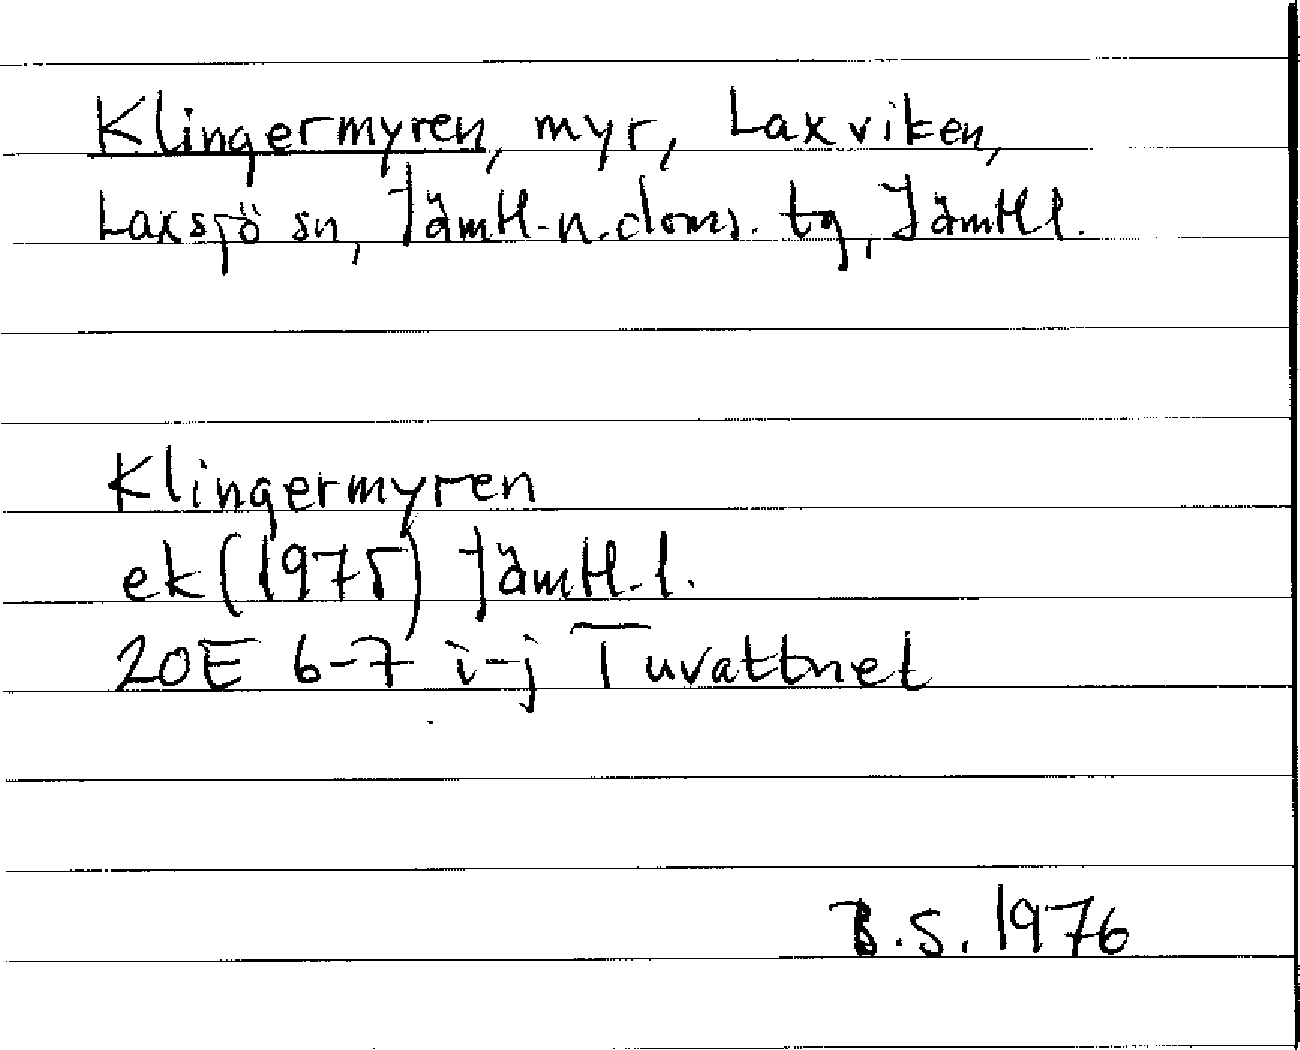 Klingermyren, myr, Laxviken,
Laxsjö sn, Jämtl.n.doms. tg, Jämtl l.
Klingermyren
ek (1975) Jämtl.l.
20E 6-7 i-j Tuvattnet
B.S. 1976